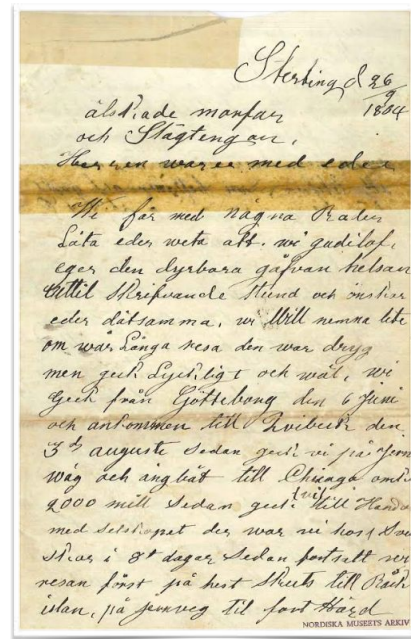 Sterling d 26/9 1864
älskade morfar
och Slägtengar,
Herren ware med eder
Wi får med några Rader
Låta eder weta att. wi gudilof,
eger den dyrbara gåfvan helsan
intil skrifvande stund och önskar
eder dätsamma, wi Will nemna lite
om wår Långa resa den war dryg
men geck Lyckligt och wäl, wi
geck från Götteborg den 6 Juni
och ankommen till Qvibeck den
3d auguste sedan geck vi på Jern
wäg och ångbåt till Chicago omkr
2000 mill sedan geck wi till
med selskapet der war vi hos
i 8t dagar sedan fortsatt
resan först på hest till Rack
islan, på jernveg til fort
NORDISKA MUSEETS ARKIV